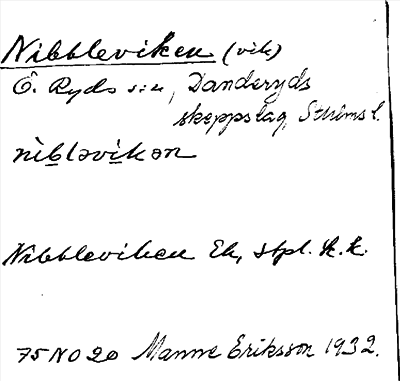 Nibbleviken (vik)
Ö. Ryds sn, Danderyds
skeppslag, Sthlms l.
nìb̲ləvik̲ən
Nibbleviken Ek, stpl. k.k.
75 NO 20 Manne Eriksson 1932.